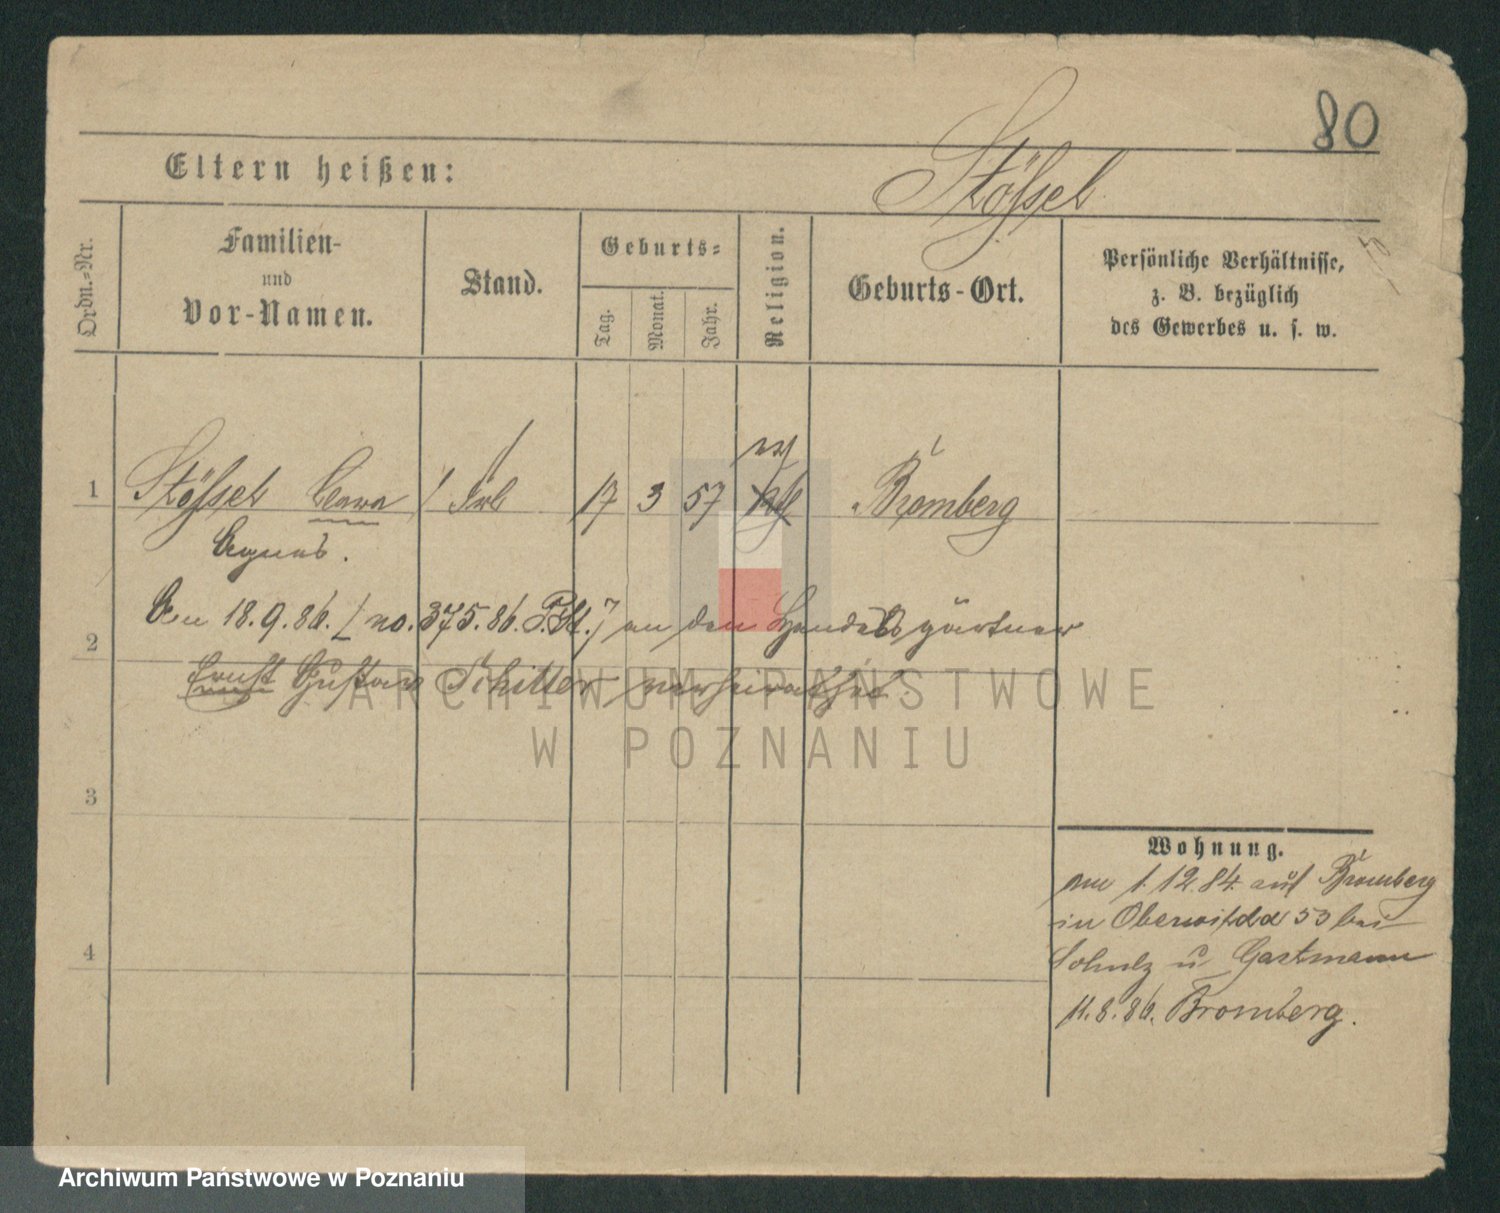 80
Eltern heißen:
Stößel
Ordn.-Nr.
Familien-
und
Vor-Namen.
Stand.
Geburts-
Tag.
Monat.
Jahr.
Religion.
Geburts-Ort.
Persönliche Verhältnisse,
z. B. bezüglich
des Gewerbes u. s. w.
1 Stößel Clara Frl 17 3 57 Bromberg
Agnes.
2
Am 18.9.86. / no. 375.86. P.St. / an den Handelsgärtner
Ernst Gustav Schiller verheirathet.
ARCHIWUM PAŃSTWOWE
W POZNANIU
3
4
Wohnung.
am 1.12.84. auf Bromberg
in 53 bei
Schulz u Gastmann
11.8.86. Bromberg.
Archiwum Państwowe w Poznaniu